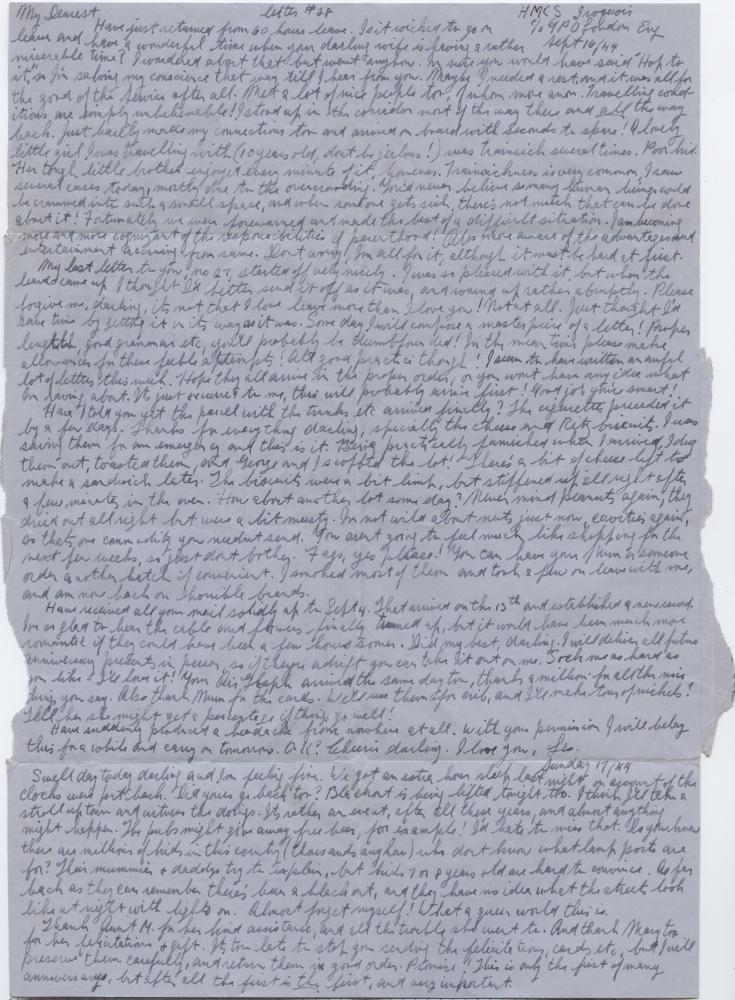 My Dearest letter #28 HMCS Iroquois
Have just returned from 60 hours leave. Is it wicked to go on c/o GPO London Eng
leave and have a wonderful time when your darling wife is having a rather Sept 16/44
miserable time? I wondered about that but went anyhow. I'm sure you would have said "Hop to
it," so I'm salving my conscience that way till I hear from you. Maybe I needed a rest, and it was all for
the good of the service after all. Met a lot of nice people too, of whom more anon. Travelling cond-
itions are simply unbelievable! I stood up in the corridor most of the way there and all the way
back. Just barely made my connections too and arrived on board with seconds to spare! A lovely
little girl I was travelling with (10 years old, don't be jealous!) was trainsick several times. Poor kid.
Her tough little brother enjoyed every minute of it, however. Trainsickness is very common, I saw
several cases today, mostly due to the overcrowding. You'd never believe so many human beings could
be crammed into such a small space, and when someone gets sick, there's not much that can be done
about it! Fortunately we were forewarned and made the best of a difficult situation. I am becoming
more and more cognizant of the responsibilities of parenthood! Also more aware of the advantages and
entertainment accruing from same. Don't worry, I'm all for it, although it must be hard at first.
My last letter to you, no 27, started off very nicely. I was so pleased with it but when the
leave came up I thought I'd better send it off as it was, and wound up rather abruptly. Please
forgive me, darling, it's not that I love leave more than I love you! Not at all. Just thought I'd
save time by getting it on its way as it was. Some day I will compose a masterpiece of a letter! Proper
length, good grammar etc, you'll probably be dumbfounded! In the mean time please make
allowances for these feeble attempts! All good practice though! I seem to have written an awful
lot of letters this week. Hope they all arrive in the proper order, or you won't have any idea what
I'm raving about. It just occurred to me, this will probably arrive first! Good job you're smart!
Have I told you yet the parcel with the trunks etc arrived finally? The cigarettes preceded it
by a few days. Thanks for everything darling, specially the cheese and Ritz biscuits. I was
saving them for an emergency and this is it. Being practically famished when I arrived, I dug
them out, toasted them, and George and I scoffed the lot! There's a bit of cheese left too
make a sandwich later. The biscuits were a bit limp, but stiffened up all right after
a few minutes in the oven. How about another lot some day? Never mind peanuts again, they
dried out all right but were a bit musty. I'm not wild about nuts just now, cavities again,
so that's one commodity you needn't send. You aren't going to feel much like shopping for the
next few weeks, so just don't bother. Fags, yes please! You can have your Mum or someone
order another batch if convenient. I smoked most of them and took a few on leave with me,
and am now back on horrible brands.
Have received all your mail solidly up to Sept 4. That arrived on the 13th and established a new record.
I'm so glad to hear the cable and flowers finally turned up, but it would have been much more
romantic if they could have been a few hours sooner. Did my best, darling. I will deliver all future
anniversary presents in person, so if they go adrift you can take it out on me. Sock me as hard as
you like & I'll love it! Your Air Graph arrived the same day too, thanks a million for all the nice
things you say. Also thank Mum for the cards. We'll use them for crib, and I'll make tons of nickels!
Tell her she might get a percentage if things go well!
Have suddenly produced a headache from nowhere at all. With your permission I will belay
this for a while and carry on tomorrow. O.K? Cheerio darling. I love you,
Sunday 17/44
Swell day today darling and I'm feeling fine. We got an extra hour sleep last night on account of the
clocks were put back. Did yours go back too? Blackout is being lifted tonight too. I think I'll take a
stroll uptown and witness the doings. It's rather an event, after all these years, and almost anything
might happen. The pubs might give away free beer, for example! I'd hate to miss that. Do you know
there are millions of kids in this country (thousands anyhow) who don't know what lamp posts are
for? Their mummies & daddys try to explain, but kids 7 or 8 years old are hard to convince. As far
back as they can remember there's been a blackout, and they have no idea what the streets look
like at night with lights on. Almost forget myself! What a queer world this is.
Thank Aunt M. for her kind assistance, and all the trouble she went to. And thank Mary too
for her felicitations & gift. It's too late to stop you sending the felicitations, cards etc, but I will
preserve them carefully, and return them in good order. Promise! This is only the first of many
anniversarys, but after all the first is the first, and very important.